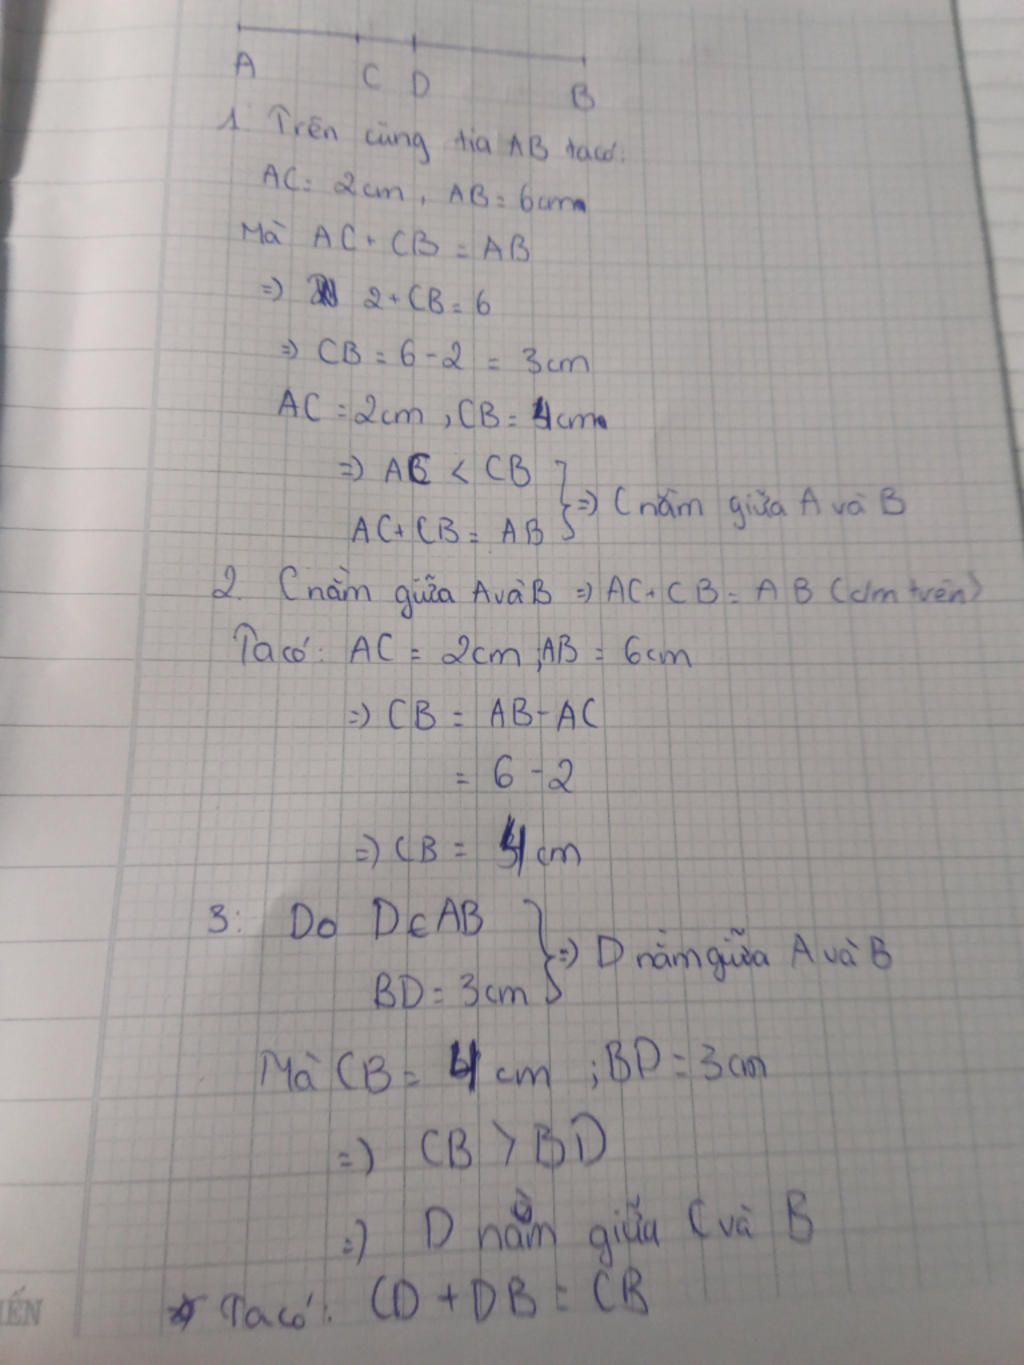 A C D B
1. Trên cùng tia AB ta có:
AC = 2cm, AB = 6cm
Mà AC + CB = AB
=> 2 + CB = 6
=> CB = 6 - 2 = 3cm
AC = 2cm, CB = 4cm
=> AC < CB
AC + CB = AB } => C nằm giữa A và B
2. C nằm giữa A và B => AC + CB = AB (cm trên)
Ta có: AC = 2cm; AB = 6cm
=> CB = AB - AC
= 6 - 2
=> CB = 4cm
3: Do D ∈ AB
BD = 3cm } => D nằm giữa A và B
Mà CB = 4 cm ; BD = 3cm
=> CB > BD
=> D nằm giữa C và B
* Ta có: CD + DB = CB
ẾN